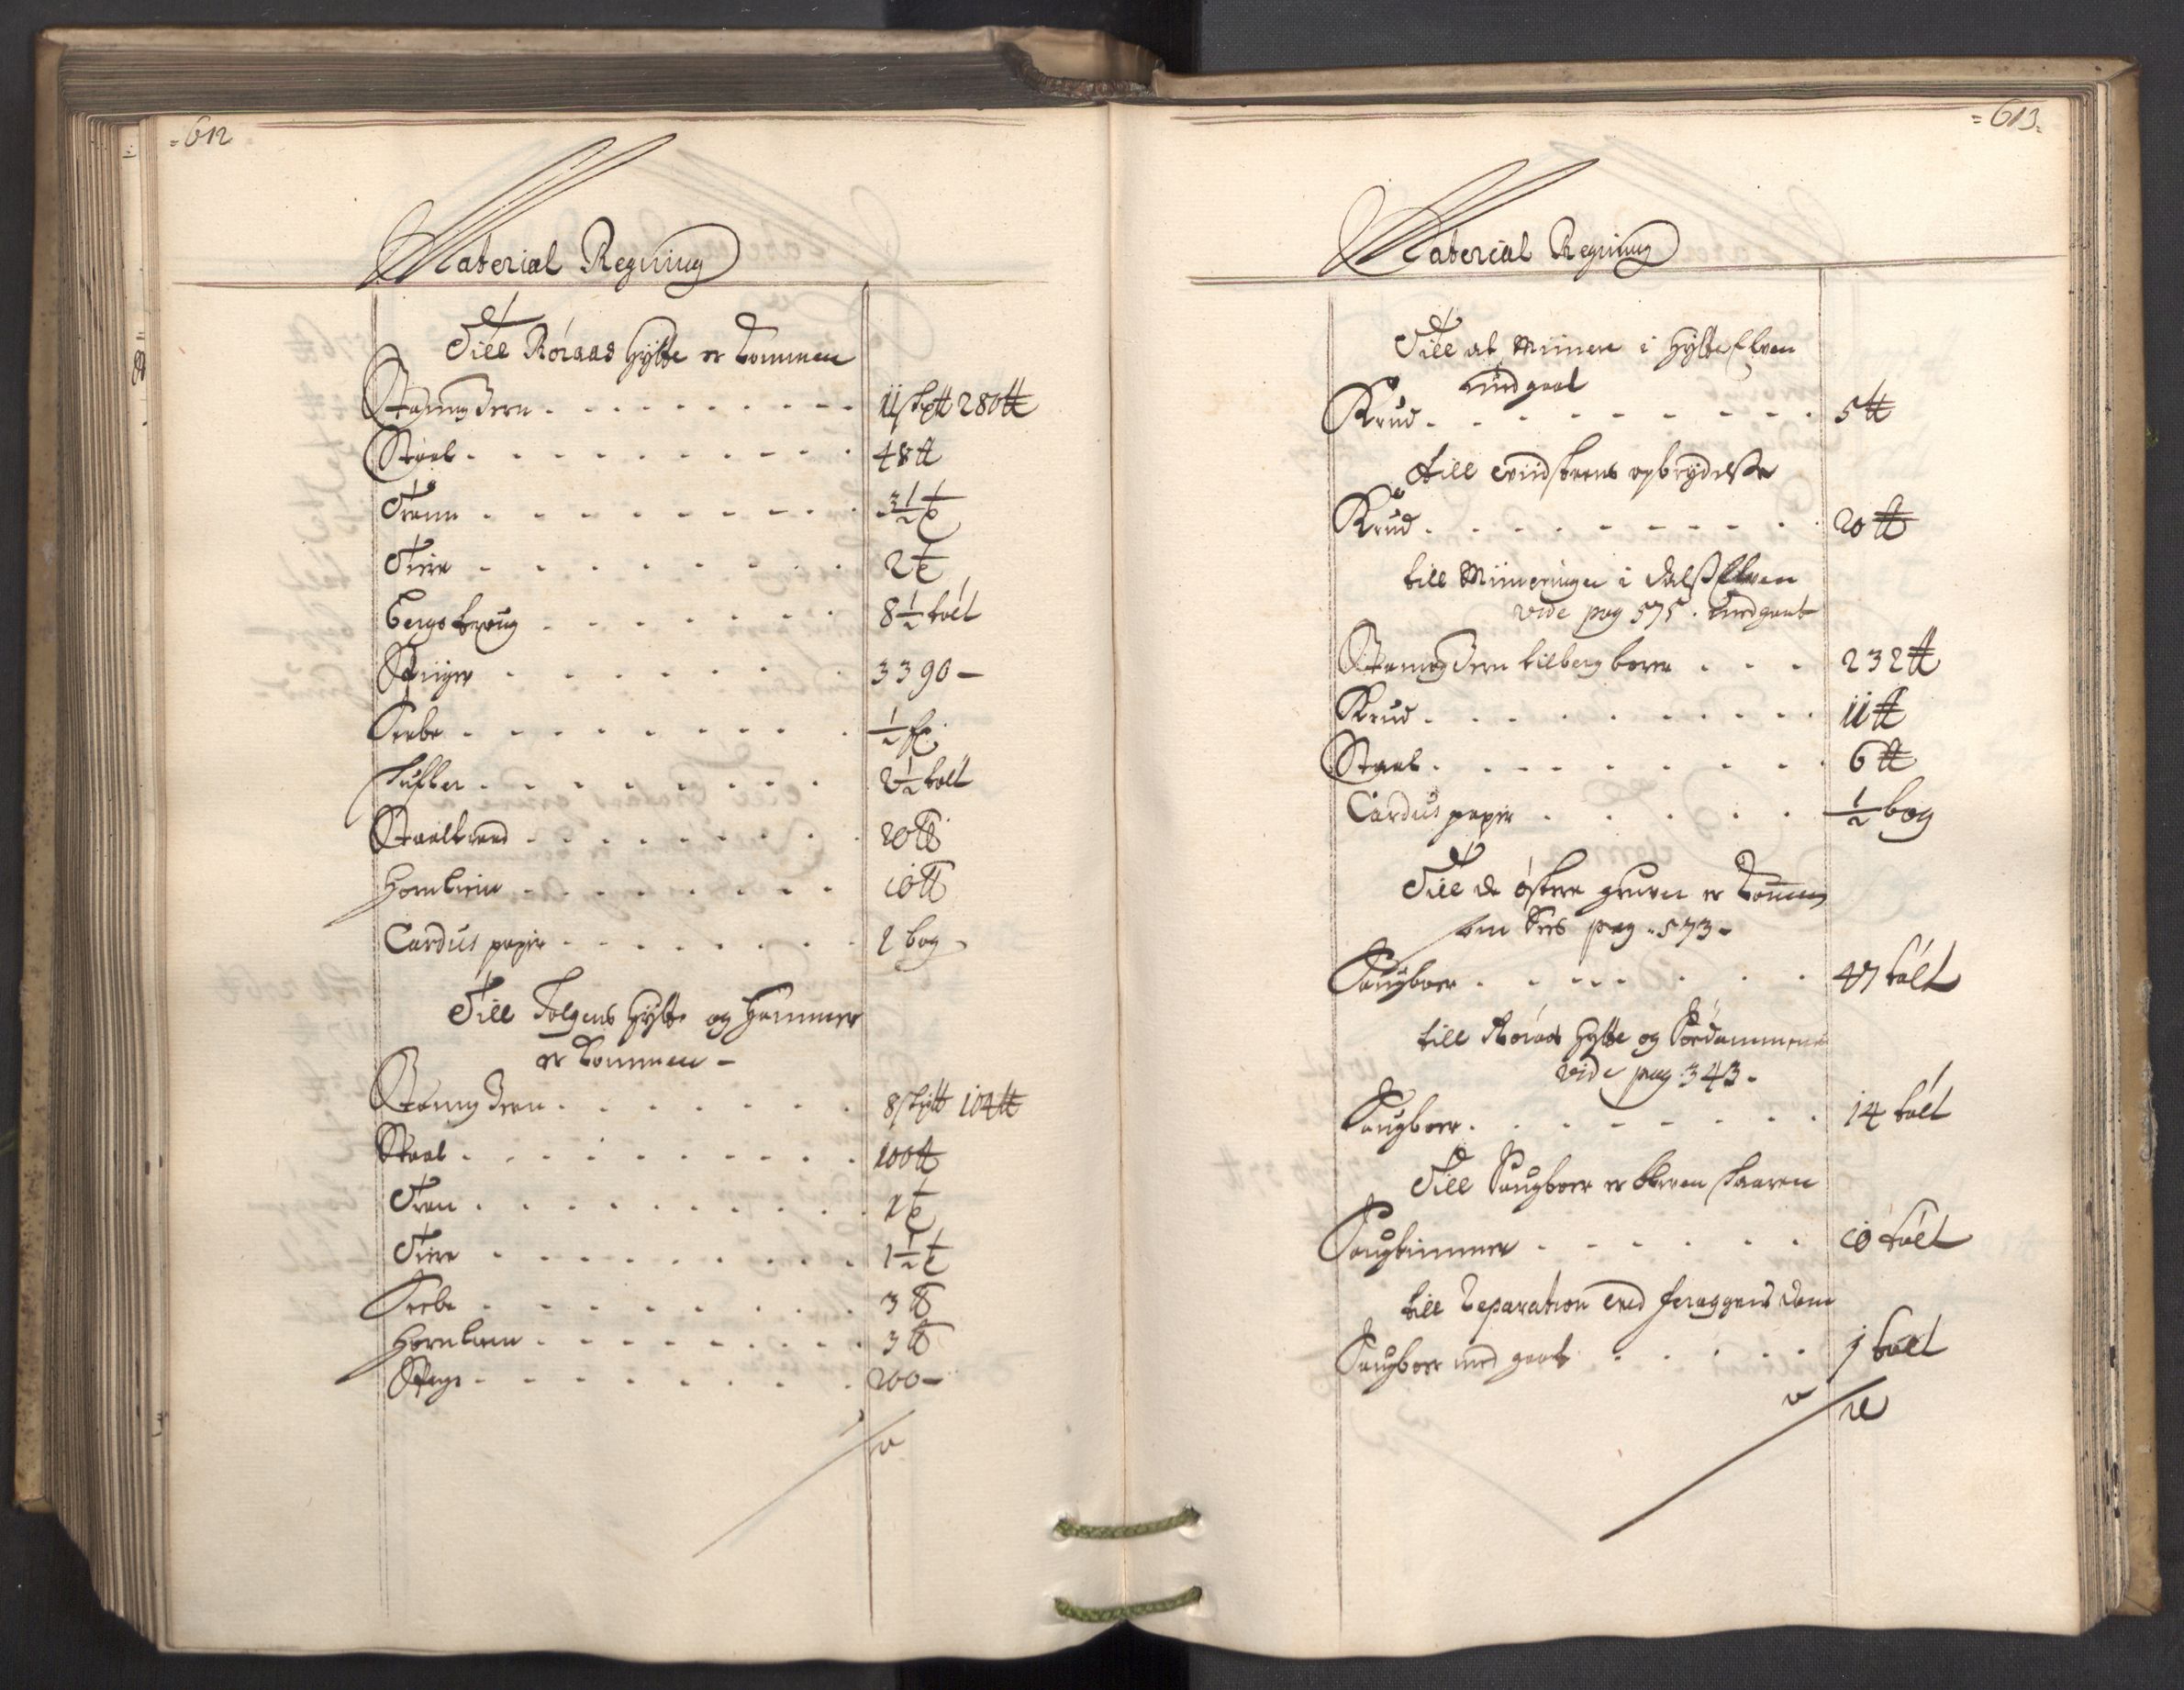 =612
Material Regning
Till Röraas Hytte er kommen
Stang Jern - - - - - - - - - 11 skp℔ 280 ℔
Staal - - - - - - - - - - 48 ℔
Trann - - - - - - - - - 3½ t
Tiere - - - - - - - - 2 t
Bergstroug - - - - - - - 8½ tölt
Spiiger - - - - - - - 3390 -
Seebe - - - - - - - -
Skufler - - - - - - - - 2½ tölt
Staaltraad - - - - - - - - 20 ℔
Hornliim - - - - - - - - 10 ℔
Cardus papir - - - - - - - 2 bog -
Till Tolgens Hytte og Hammer
er kommen -
Stang Jern - - - - - - - 8 skp℔ 104 ℔
Staal - - - - - - - - - - 100 ℔
Tran - - - - - - - - - - 1 t
Tiere - - - - - - - - - 1½ t
Seebe - - - - - - - - 3 ℔
Hornliim - - - - - - - - 3 ℔
Spiger - - - - - - - - 200 -
=613=
Material Regning
Till at Miinere i Hytte Elven
medgaat
Krud - - - - - - - - - 5 ℔
till opbrydelse
Krud - - - - - - - - - 20 ℔
till Miineringen i Elven
vide pag 575. medgaat
Stang Jern til berg borer - - - 232 ℔
Krud - - - - - - - - - - 11 ℔
Staal - - - - - - - - - 6 ℔
Cardus papir - - - - - - ½ bog
Till de östere gruver er kommen
som sees pag. 573 -
Saugboer - - - - - - - - 47 tölt
till Röraas Hytte og
vide pag 343 -
Saugboer - - - - - - - - 14 tölt
Till Saugboer er bleven skaaren
Saugtimmer - - - - - - 10 tölt
till Reparation ved feraggens dam
Saugboer medgaat - - - - - 1 tölt